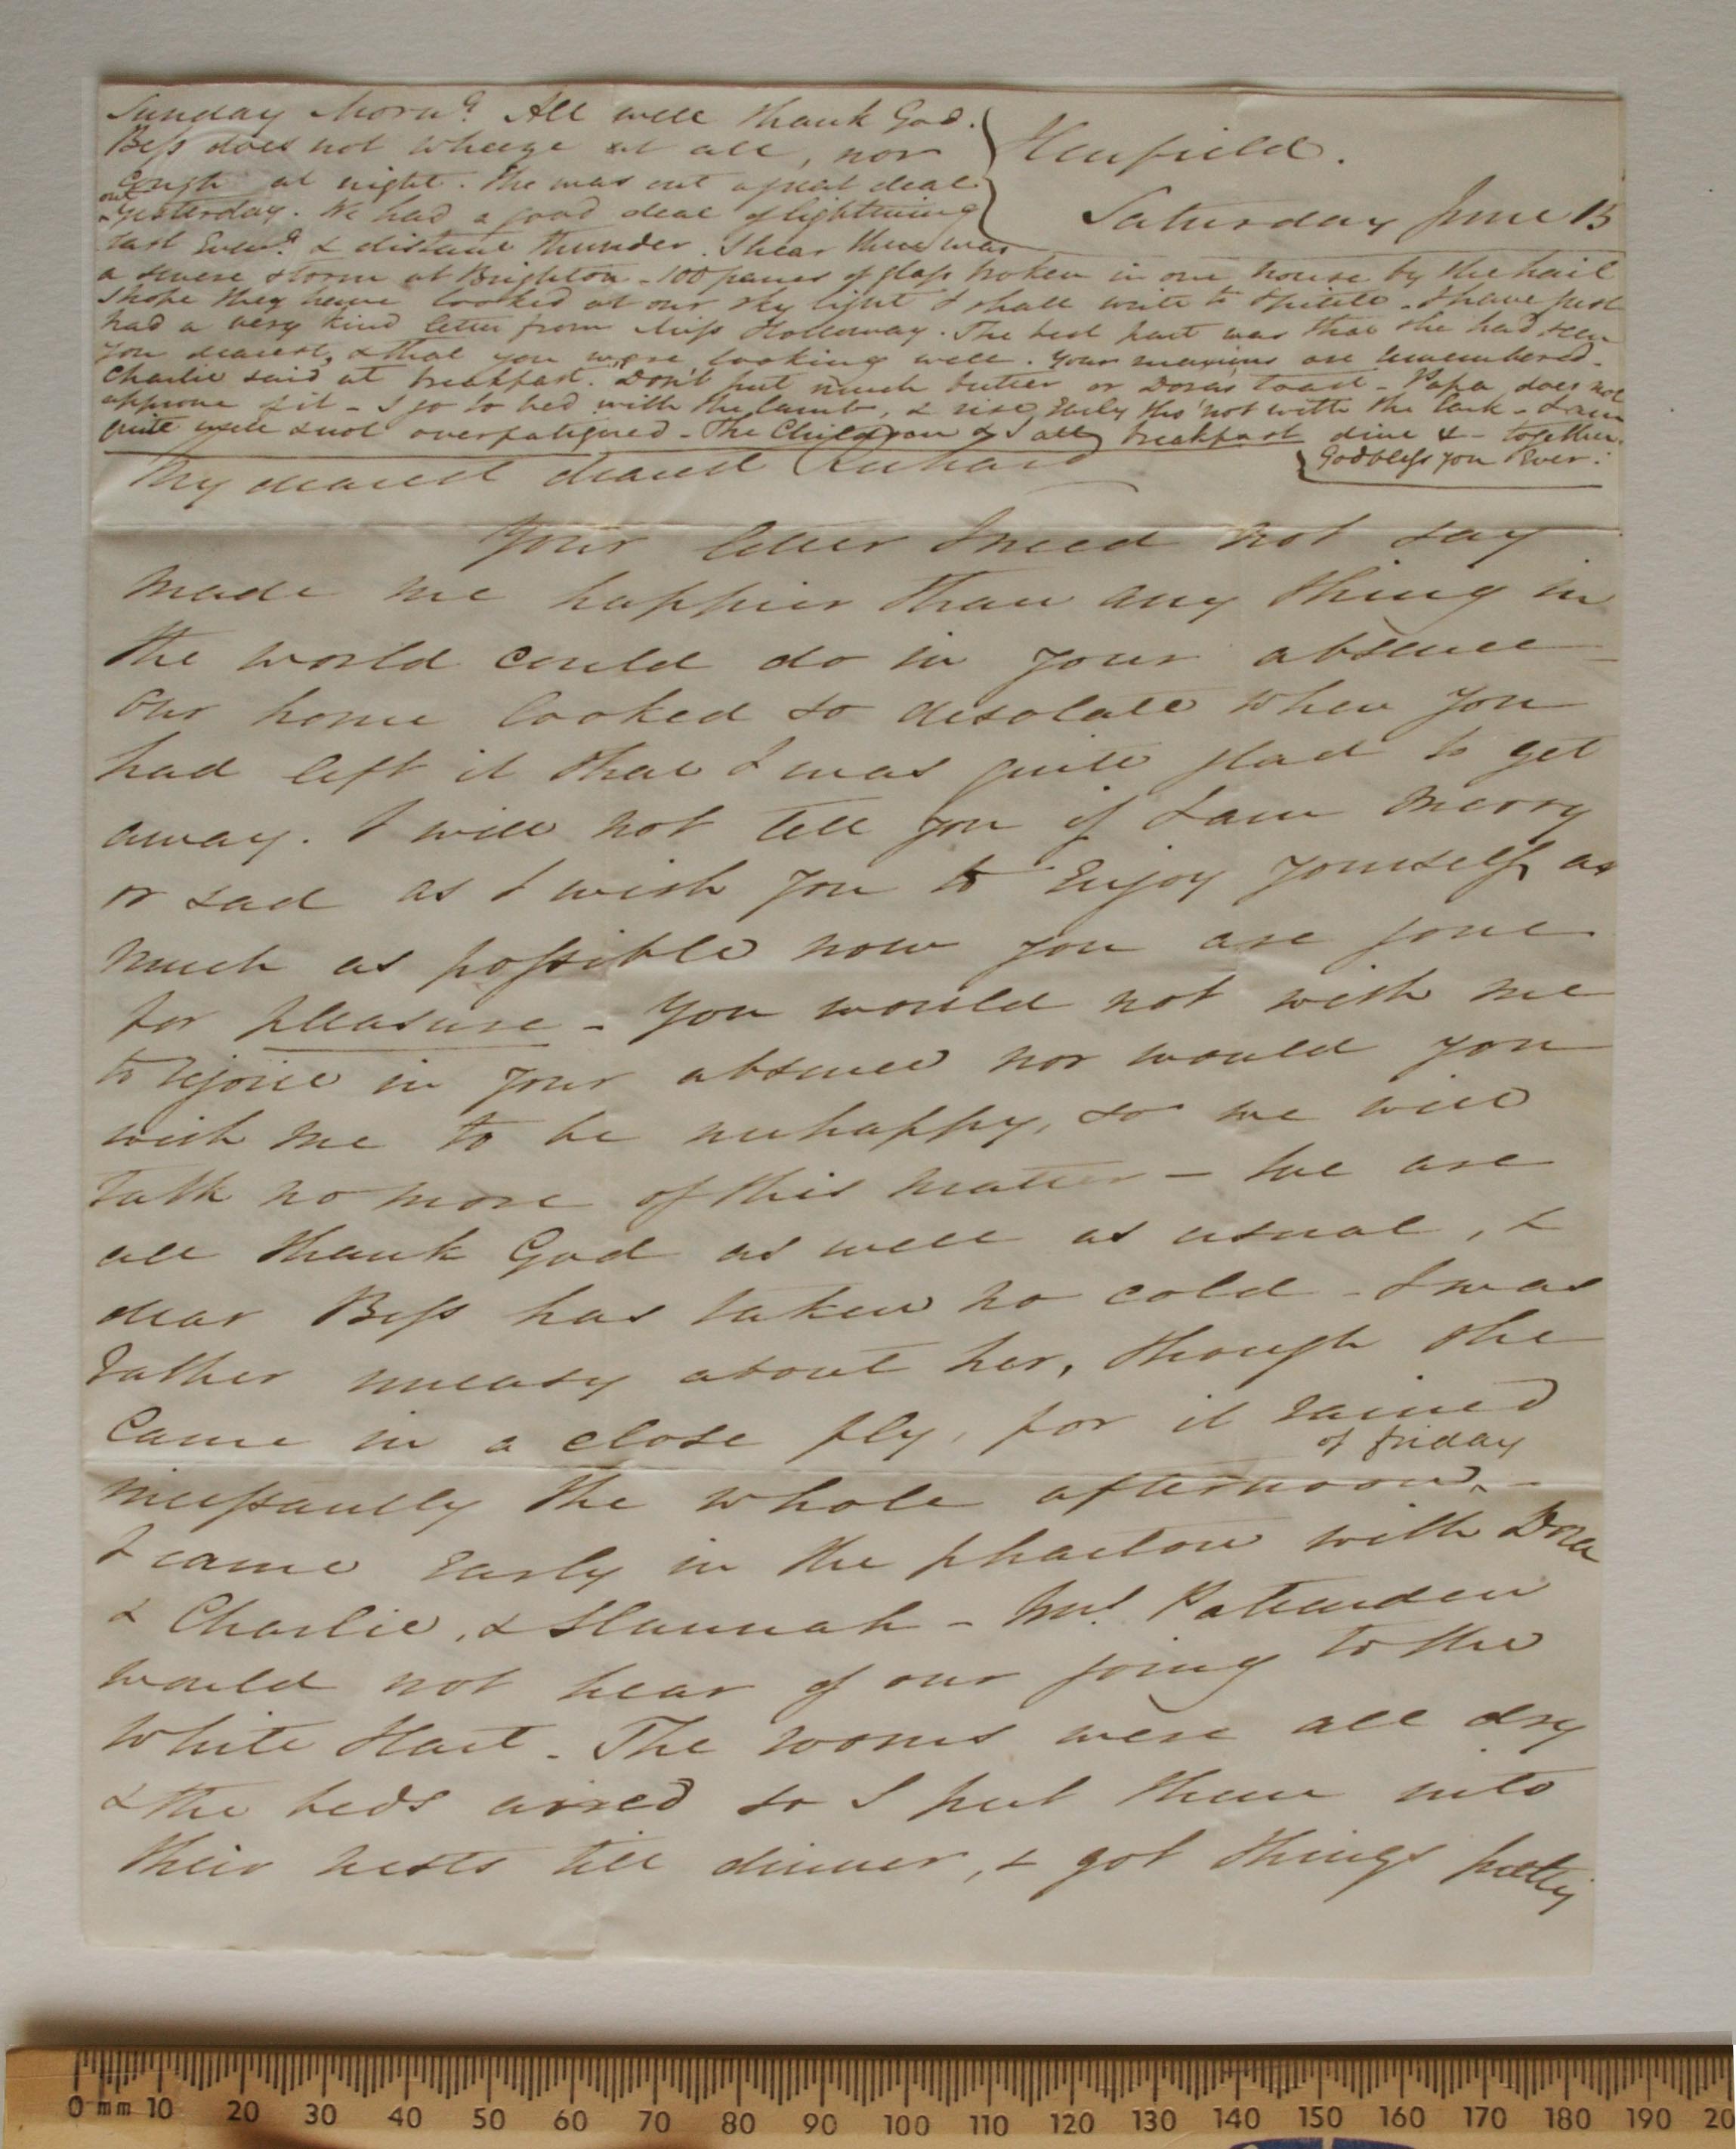 Sunday Morng. All well thank God.
Bess does not wheeze at all, nor
cough at night. She was out a great deal
yesterday. We had a good deal of lightning
last Eveng. & distant thunder. I hear there was
Henfield.
Saturday June 15
a severe storm at Brighton - 100 panes of glass broken in one house by the hail
I hope they have looked at our sky light I shall write to - I have just
had a very kind letter from Miss Holloway. The best part was that she had seen
you dearest, & that you were looking well. Your maxims are remembered.
Charlie said at breakfast. "Don't put much butter on Dora's toast - Papa does not
approve of it - I go to bed with the lamb, & rise, early tho' not with the lark - I am
quite well & not overfatigued - The Children & I all breakfast dine & - together.
God bless you Ever.
My dearest dearest Richard
Your letter I need not say
made me happier than any thing in
the world could do in your absence -
Our home looked so desolate when you
had left it that I was quite glad to get
away. I will not tell you if I am merry
or sad as I wish you to Enjoy yourself as
much as possible now you are gone
for pleasure - You would not wish me
to rejoice in your absence nor would you
wish me to be unhappy, so we will
talk no more of this matter - We are
all thank God as well as usual, &
dear Bess has taken no cold - I was
rather uneasy about her, though she
came in a close fly, for it rained
of Friday
incessantly the whole afternoon. -
I came early in the phaeton with Dora
& Charlie, & Hannah - Mrs. Pattenden
would not hear of our going to the
White Hart - The rooms were all dry
& the beds aired so I put them into
their nests till dinner, & got things pretty
0 mm 10 20 30 40 50 60 70 80 90 100 110 120 130 140 150 160 170 180 190 20